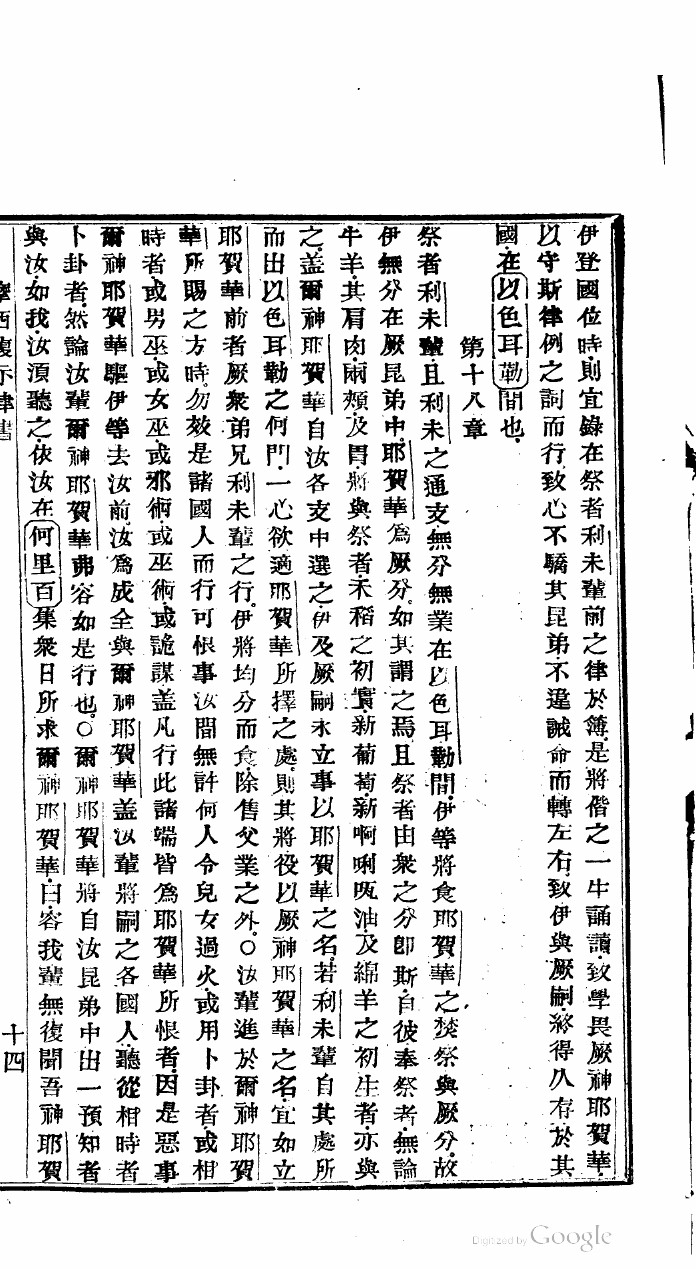 伊登國位時則宜錄在祭者利未輩前之律於簿是將偕之一生誦讀致學畏厥神耶賀華
以守斯律例之詞而行致心不驕其昆弟不違誡命而轉左右致伊與厥嗣將得久存於其
國在以色耳勒間也
第十八章
祭者利未輩且利未之通支無分無業在以色耳勒間伊等將食耶賀華之焚祭與厥分故
伊無分在厥昆弟中耶賀華為厥分如其謂之焉且祭者由衆之分卽斯自彼奉祭者無論
牛羊其肩肉兩頰及胃將與祭者禾稻之初實新葡萄新啊唎㕭油及綿羊之初生者亦與
之蓋爾神耶賀華自汝各支中選之伊及厥嗣永立事以耶賀華之名若利未輩自其處所
而出以色耳勒之何門一心欲適耶賀華所擇之處則其將役以厥神耶賀華之名宜如立
耶賀華前者厥衆弟兄利未輩之行伊將均分而食除售父業之外○汝輩進於爾神耶賀
華所賜之方時勿效是諸國人而行可恨事汝間無許何人令兒女過火或用卜卦者或相
時者或男巫或女巫或邪術或巫術或詭謀蓋凡行此諸端皆為耶賀華所恨者因是惡事
爾神耶賀華驅伊等去汝前汝為成全與爾神耶賀華蓋汝輩將嗣之各國人聽從相時者
卜卦者然論汝輩爾神耶賀華弗容如是行也○爾神耶賀華將自汝昆弟中出一預知者
與汝如我汝須聽之依汝在何里百集衆日所求爾神耶賀華曰容我輩無復聞吾神耶賀
摩西復示律書
十四
Digitized by Google